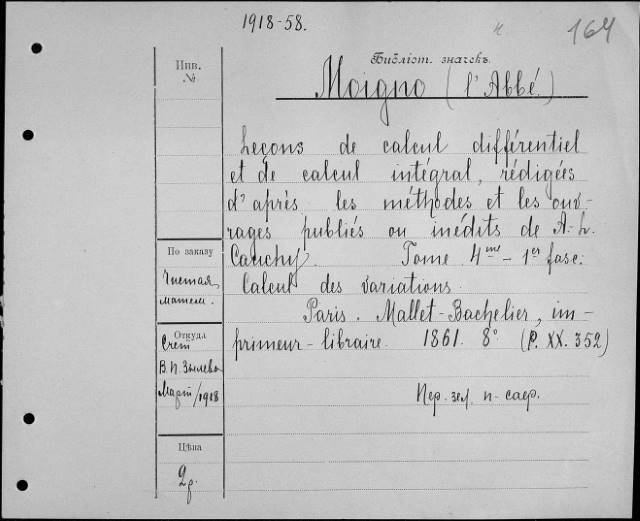 1918-58.
164
Инв.
№
Библіот. значекъ
Moigno (l'Abbé.)
Leçons de calcul différentiel
et de calcul intégral, rédigées
d'après les méthodes et les ouv-
rages publiés ou inédits de A.-L.
Cauchy. Tome 4me - 1er fasc.
Calcul des variations.
Paris. Mallet-Bachelier, im-
primeur-libraire. 1861. 8° (P. XX. 352)
Пер. зел. п-саер.
По заказу
Чистая
матем.
Откуда
Счет
В.П.
Март/1918
Цѣна
2р.